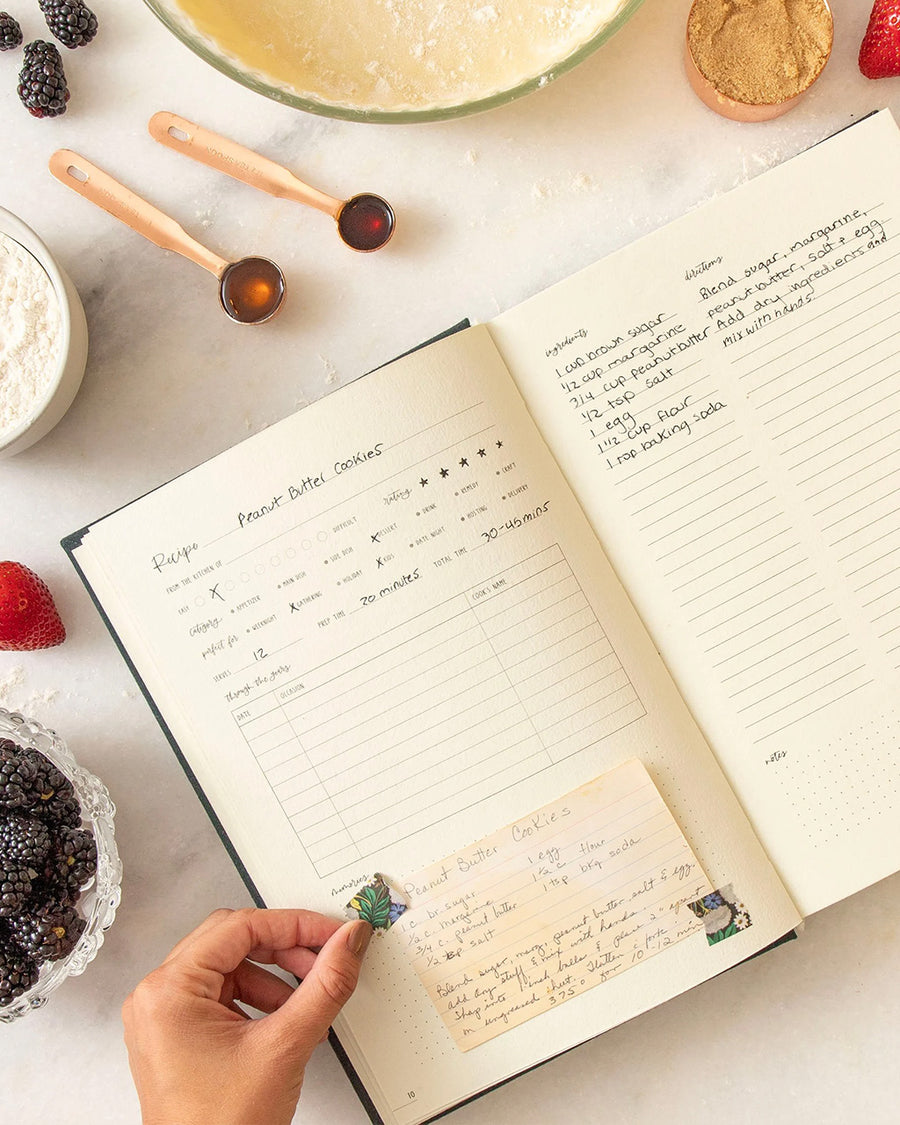 Recipe Peanut Butter Cookies
rating
FROM THE KITCHEN OF
EASY X DIFFICULT
category APPETIZER MAIN DISH SIDE DISH X DESSERT DRINK REMEDY CRAFT
perfect for WEEKNIGHT X GATHERING HOLIDAY X KIDS DATE NIGHT HOSTING DELIVERY
SERVES 12 PREP TIME 20 minutes TOTAL TIME 30-45 mins
through the years
DATE OCCASION COOK'S NAME
memories
Peanut Butter Cookies
1 c br. sugar
1/2 c margarine
3/4 c. peanut butter
1/2 tsp salt
1 egg
1 1/2 c flour
1 tsp bkg soda
Blend sugar, marg, peanut butter salt & egg.
add dry stuff & mix with hands.
Shape into 1 inch balls & place 2" apart
on ungreased sheet. Flatten c fork
375° for 10-12 min
10
ingredients
1 cup brown sugar
1/2 cup margarine
3/4 cup peanut butter
1/2 tsp salt
1 egg
1 1/2 cup flour
1 tsp baking soda
directions
Blend sugar, margarine,
peanut butter, salt & egg
Add dry ingredients and
mix with hands.
notes